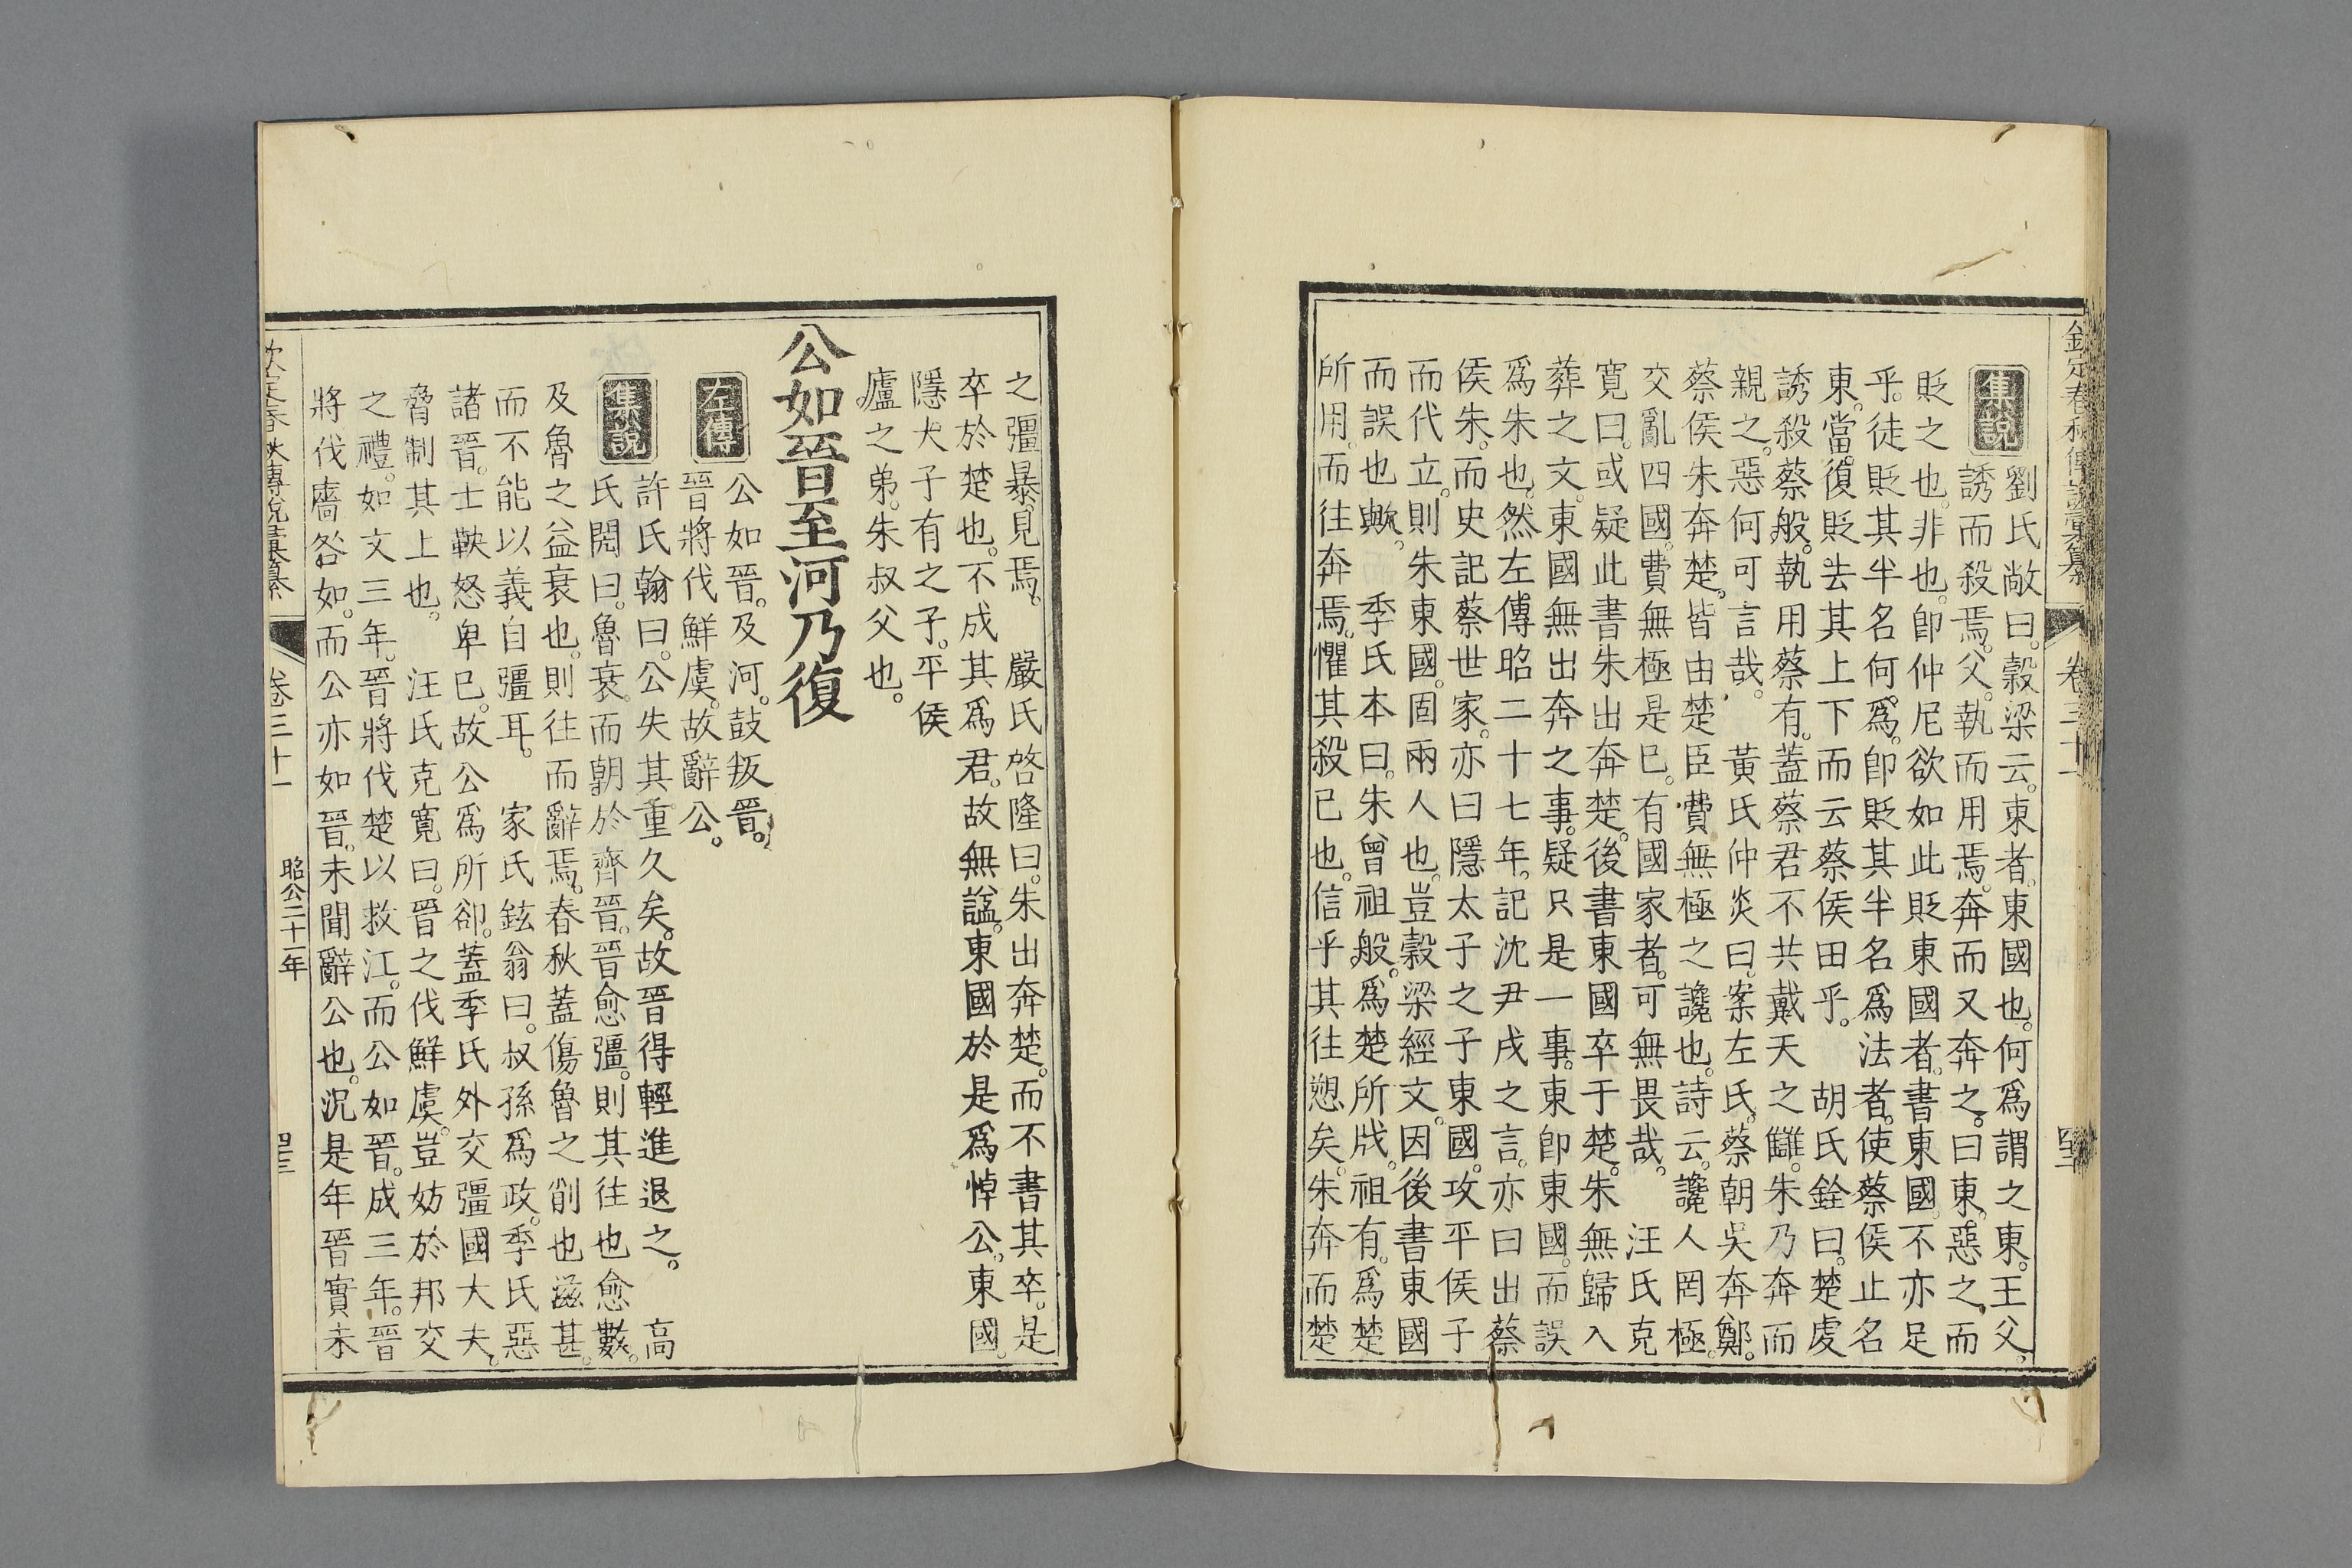 欽定春秋傳說彙纂 卷三十一 四十二
集說 劉氏敞曰。穀梁云。東者。東國也。何爲謂之東。王父。
誘而殺焉。父。執而用焉。奔而又奔之。曰東。惡之而
貶之也。非也。卽仲尼欲如此貶東國者。書東國。不亦足
乎。徒貶其半名何爲。卽貶其半名爲法者。使蔡侯止名
東。當。復貶去其上下而云蔡侯田乎。 胡氏銓曰。楚虔
誘殺蔡般。執用蔡有。蓋蔡君不共戴天之讎。朱乃奔而
親之。惡何可言哉。 黃氏仲炎曰。案左氏。蔡朝吳奔鄭。
蔡侯朱奔楚。皆由楚臣費無極之讒也。詩云。讒人罔極。
交亂四國。費無極是已。有國家者。可無畏哉。 汪氏克
寬曰。或疑此書朱出奔楚。後書東國卒于楚。朱無歸入
葬之文。東國無出奔之事。疑只是一事。東卽東國。而誤
爲朱也。然左傳昭二十七年。記沈尹戌之言。亦曰出蔡
侯朱。而史記蔡世家。亦曰隱太子之子東國。攻平侯子
而代立。則朱東國。固兩人也。豈穀梁經文。因後書東國
而誤也歟。 季氏本曰。朱曾祖般。爲楚所戕。祖有。爲楚
所用。而往奔焉。懼其殺已也。信乎其往愬矣。朱奔而楚
之彊暴見焉。 嚴氏啓隆曰。朱出奔楚。而不書其卒。是
卒於楚也。不成其爲君。故無諡。東國於是爲悼公。東國。
隱大子有之子。平侯
廬之弟。朱叔父也。
公如晉至河乃復
左傳 公如晉。及河。鼓叛晉。
晉將伐鮮虞。故辭公。
集說 許氏翰曰。公失其重久矣。故晉得輕進退之。 高
氏閌曰。魯衰。而朝於齊晉。晉愈彊。則其往也愈數。
及魯之益衰也。則往而辭焉。春秋蓋傷魯之削也滋甚。
而不能以義自彊耳。 家氏鉉翁曰。叔孫爲政。季氏惡
諸晉。士鞅怒卑已。故公爲所卻。蓋季氏外交彊國大夫。
脅制其上也。 汪氏克寬曰。晉之伐鮮虞。豈妨於邦交
之禮。如文三年。晉將伐楚以救江。而公如晉。成三年。晉
將伐廧咎如。而公亦如晉。未聞辭公也。況是年晉實未
欽定春秋傳說彙纂 卷三十一 昭公二十一年 四十三